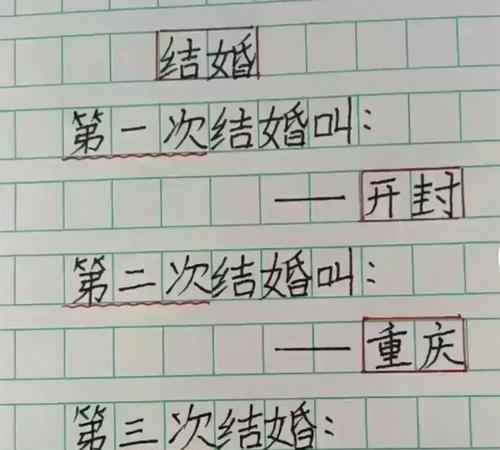 结婚
第一次结婚叫：
——开封
第二次结婚叫：
——重庆
第三次结婚：